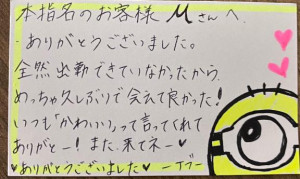 本指名のお客様 Mさんへ.
ありがとうございました。
全然出勤できていなかったから、
めっちゃ久しぶりで会えて良かった!
いつも「かわいい」って言ってくれて
ありがとー!また、来てネー♥
♥ありがとうございました♥